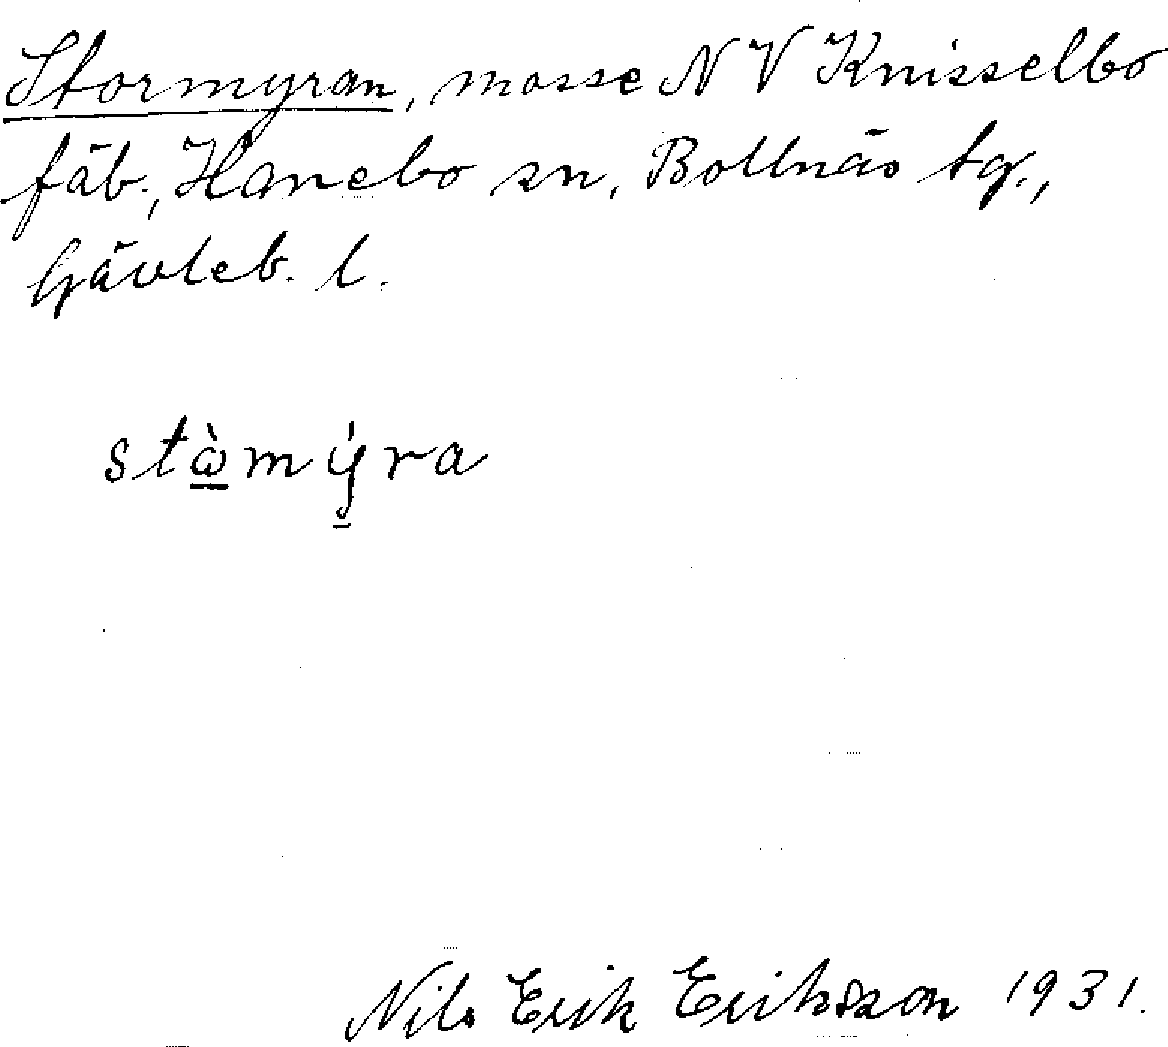 Stormyran, mosse NV Knisselbo
fäb., Hanebo sn, Bollnäs tg.,
Gävleb. l.
stὼmýra
Nils Erik Eriksson 1931.